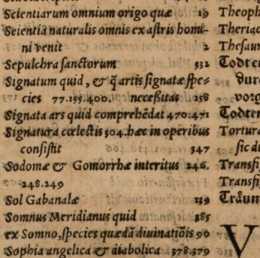 Scientiarum omnium origo quæ 19
Scientia naturalis omnis ex astris homi-
ni venit 2
Sepulchra sanctorum 532
Signatum quid, & q̃ artis signatæ spe-
cies 77.155.400. necessitas 258
Signata ars quid comprehēdat 470.471
Signatura cœlestis 304. hæc in operibus
consistit 347
Sodomæ & Gomorrhæ interitus 246.
248.249
Sol Gabanalæ 119
Somnus Meridianus quid 385
ex Somno, species quædā divinatiōis 90
Sophia angelica & diabolica 378.379
Theoph
Theriac
Thesau
Todte
vorg
Todten
Tortura
sic di
Transfi
Transfi
Träum
V